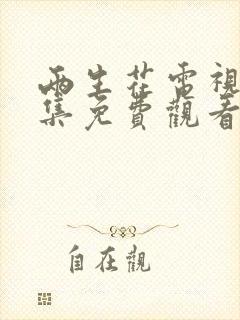 两生花電視
集免費觀看
自在觀